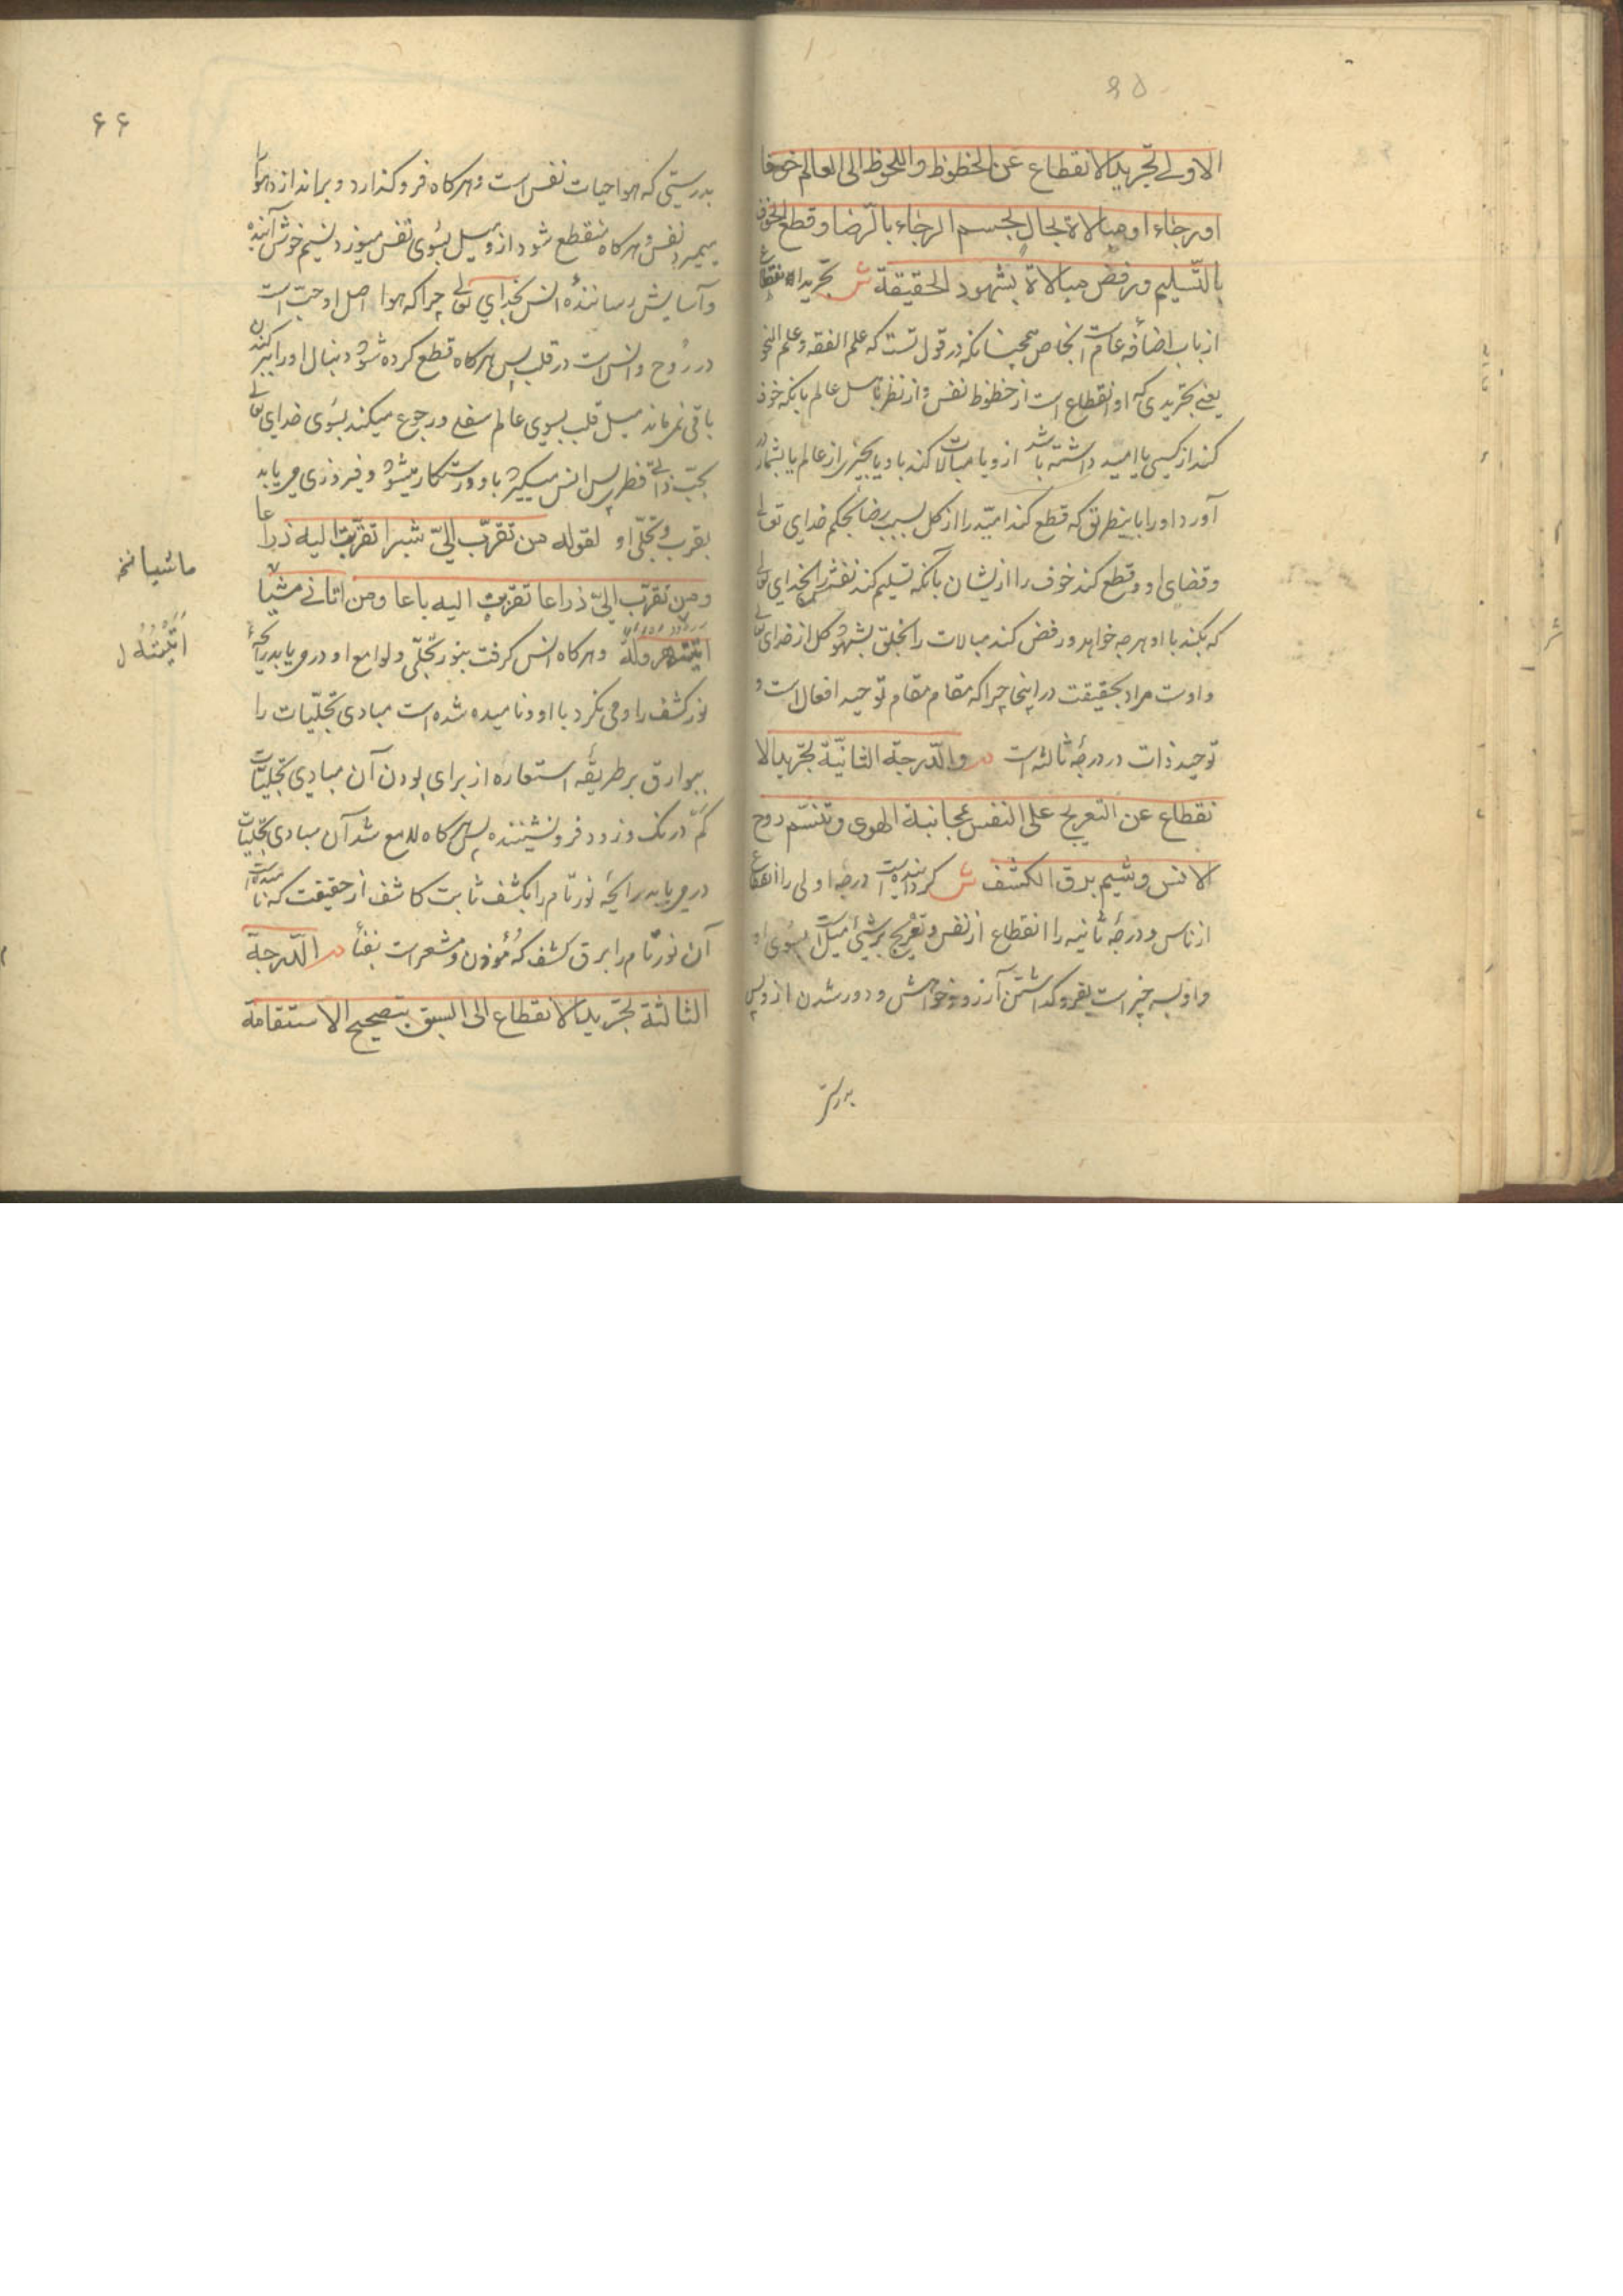 ۶۵
الاولی تجرید الانقطاع عن الحظوظ واللحوظ الی العالم خوفا
او رجاء او مبالاة بحال بحسم الرجاء بالرّضا و قطع الخوف
بالتّسلیم و رفض مبالاة بشهود الحقیقة ش تجرید انقطاع
از باب اضافهٔ عام است بخاص همچنانکه در قول تست که علم الفقه و علم النحو
یعنی تجریدی که او انقطاع است از حظوظ نفس و از نظر تامل عالم بانکه خوف
کند از کسی یا امید داشته باشد ازو یا مبالات کند باو یا بچیزی از عالم یا بشمار
آورد او را باینطریق که قطع کند امید را از کل بسبب رضا بحکم خدای تعالی
و قضای او و قطع کند خوف را ازیشان بآنکه تسلیم کند نفس را بخدای تعالی
که بکند با او هرچه خواهد و رفض کند مبالات را بخلق بشهود کل از خدای تعالی
و اوست مراد بحقیقت در اینجا چراکه مقام مقام توحید افعال است و
توحید ذات در درجهٔ ثالثه است م والدّرجة الثانیّة تجرید الا
نقطاع عن التعریج علی النفس بمجانبة الهوی و تنسّم روح
الانس و شیم برق الکشف ش گردانیده است درجهٔ اولی را انقطاع
از ناس و درجهٔ ثانیه را انقطاع از نفس و تعریج بر شیئ میل است بسوی او
و او بسه چیز است بفروگذاشتن آرزو و خواهش و دور شدن ازو پس
بدرستی
۶۶
بدرستی که هوا حیات نفس است و هرکاه فروگذارد و براند از و هوا را
بمیرد نفس و هرکاه منقطع شود ازو میل بسوی نفس میوزد نسیم خوش آینده
و آسایش رسانندهٔ انس بخدای تعالی چراکه هوا اصل او حبّ است
در روح و انس است در قلب پس هرکاه قطع کرده شود دنبال او را ببر کندن
باقی نمی‌ماند میل قلب بسوی عالم سفلی و رجوع میکند بسوی خدای تعالی
بحبّ ذاتی فطری پس انس میگیرد باو و رستکار میشود و فیروزی می‌یابد
بقرب و تجلّی او لقوله من تقرّب الیّ شبرا تقرّبت الیه ذراعا
و من تقرّب الیّ ذراعا تقرّبت الیه باعا و من اتانی مشیا
اتیته هرولة و هرکاه انس گرفت بنور تجلّی و لوامع او در می‌یابد رایحهٔ
نور کشف را و می‌نگرد با او و نامیده شده است مبادی تجلّیات را
ببوارق بر طریقهٔ استعاره از برای بودن آن مبادی تجلیّات
کم درنک و زود فرو نشیننده پس هرکاه لامع شد آن مبادی تجلیّات
در می‌یابد رایحهٔ نور تام را بکشف ثابت کاشف از حقیقت که نامیده است
آن نور تام را برق کشف که مؤذن و مشعر است بفنا م الدّرجة
الثالثة تجرید الانقطاع الی السبق بتصحیح الاستقامة
ماشیا نخ
اتیته ل